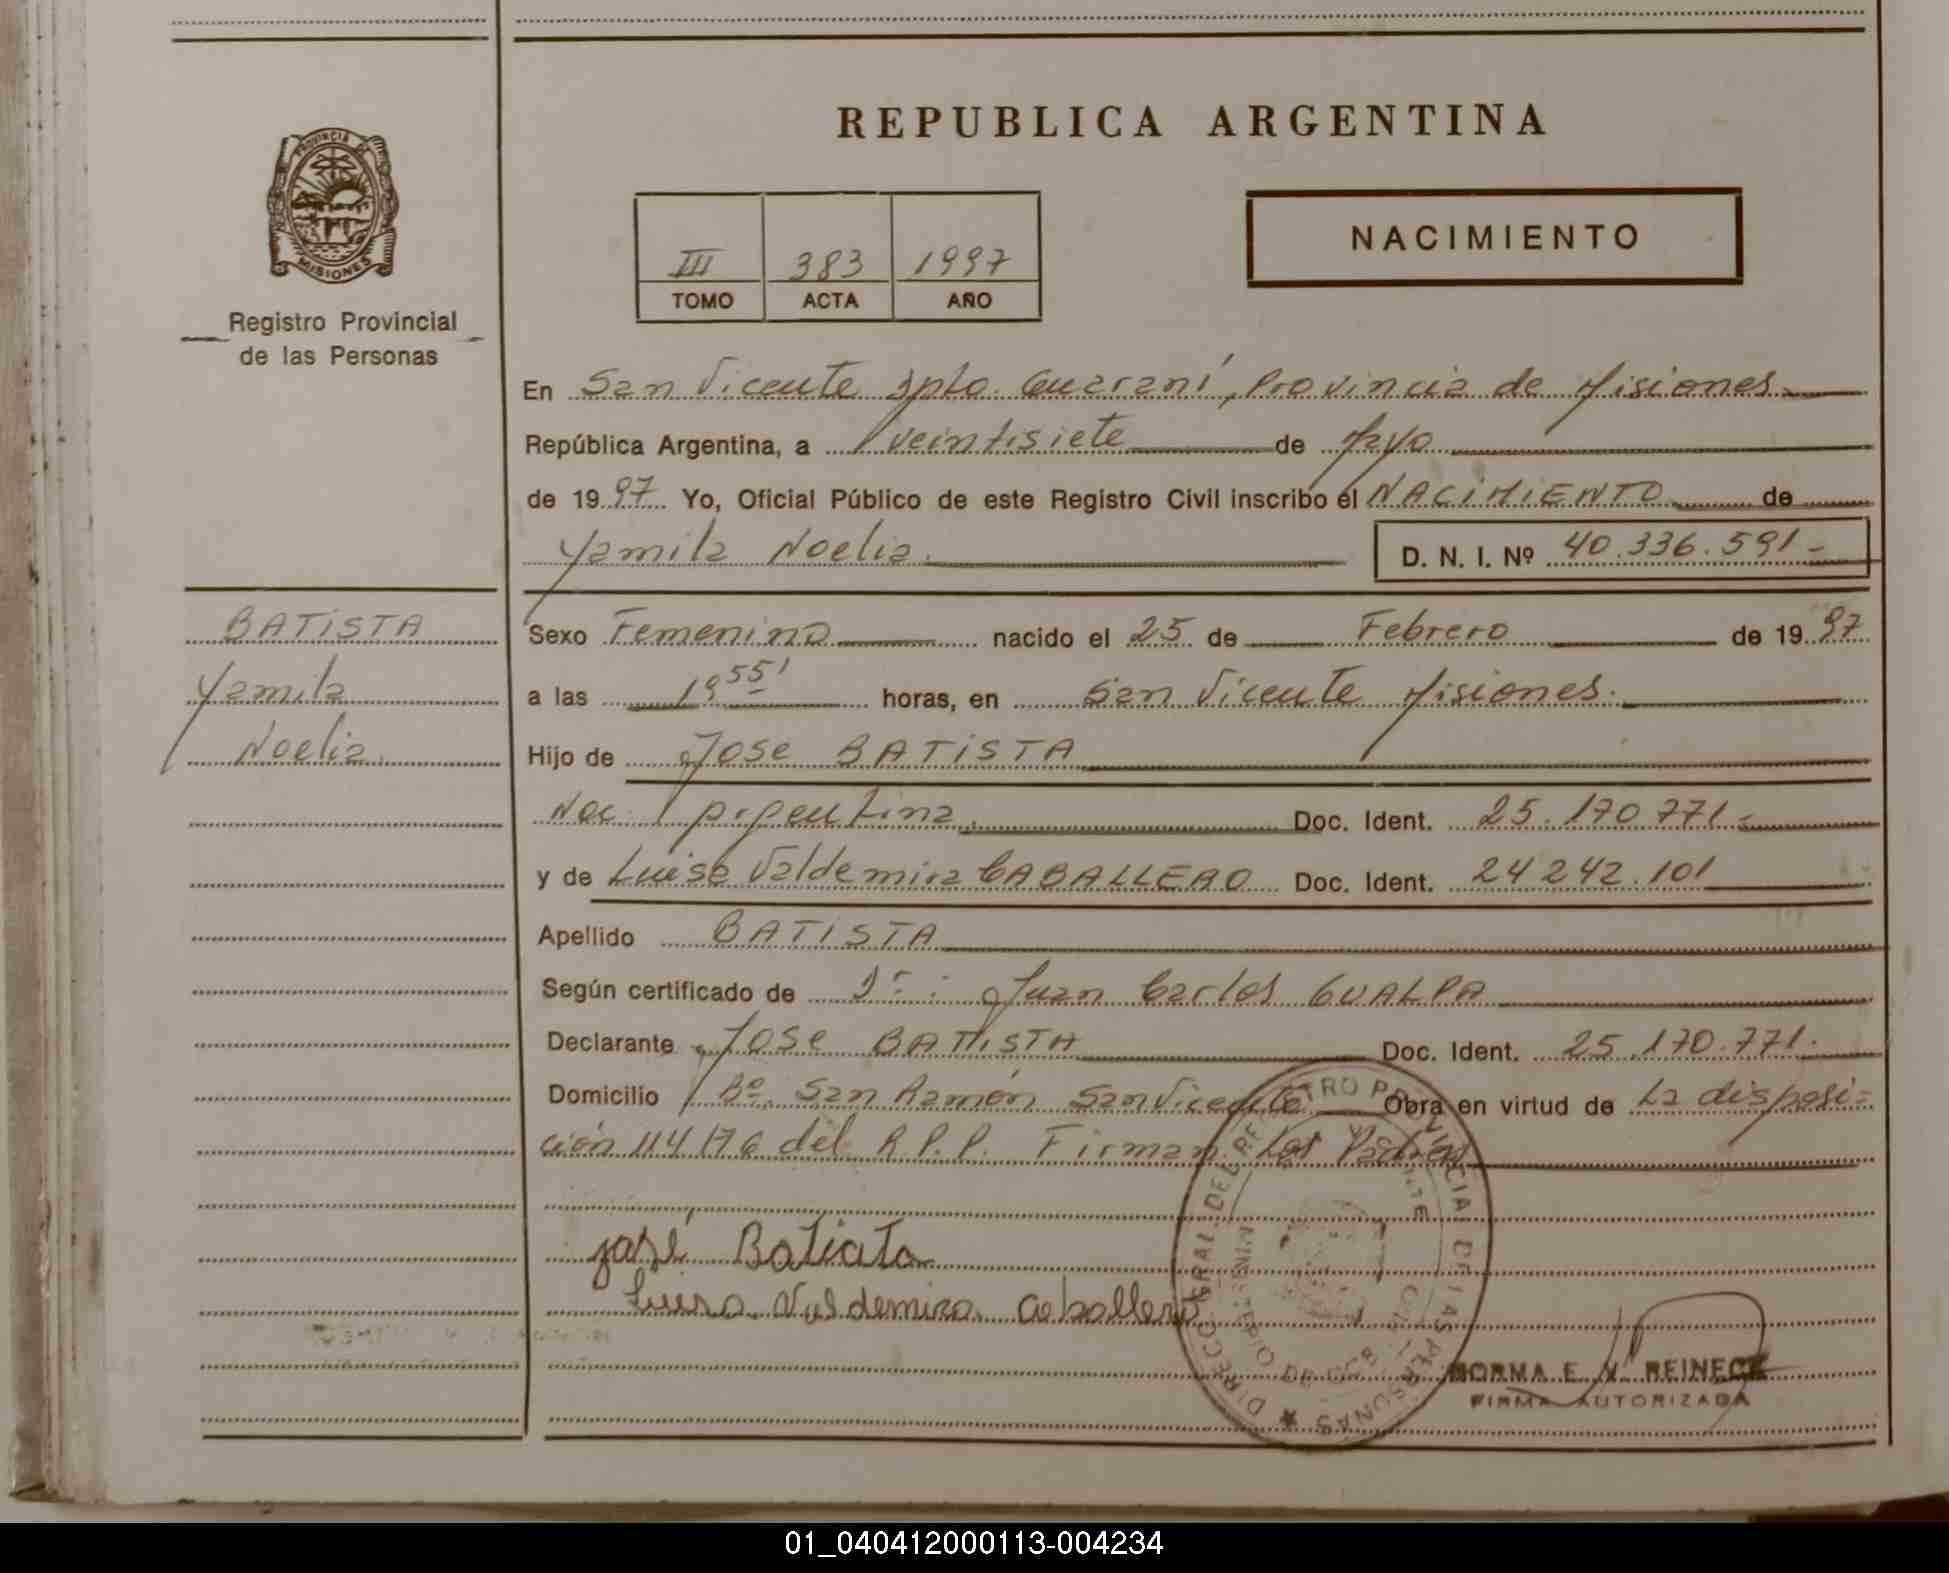 REPUBLICA ARGENTINA
PROVINCIA DE MISIONES
Registro Provincial
de las Personas
III 383 1997
TOMO ACTA AÑO
NACIMIENTO
En San Vicente Dpto. Guaraní, Provincia de Misiones
República Argentina, a veintisiete de Mayo
de 1997 Yo, Oficial Público de este Registro Civil inscribo el NACIMIENTO de
Yamila Noelia. D. N. I. Nº 40.336.591-
BATISTA
Yamila
Noelia.
Sexo Femenino nacido el 25 de Febrero de 1997
a las 19 55' horas, en San Vicente Misiones.
Hijo de Jose BATISTA
Nac. Argentina. Doc. Ident. 25.170.771-
y de Luisa Valdemira CABALLERO Doc. Ident. 24 242.101
Apellido BATISTA
Según certificado de Dr. Juan Carlos GUALPA
Declarante Jose BATISTA Doc. Ident. 25.170.771.
Domicilio Bº. San Ramón San Vicente Obra en virtud de La disposi=
ción 114/76 del R.P.P. Firman Los Padres
José Batista
Luisa Valdemira Caballero
NORMA E. V. REINECK
FIRMA AUTORIZADA
01_040412000113-004234